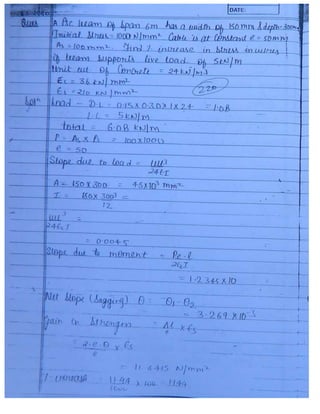 DATE:
Ques A PSC beam of span 6m has a width of 150mm & depth 300mm
Initial stress = 1000 N/mm² Cable is at constant e = 50mm
As = 100mm² Find % increase in stress in wires
if beam supports live load of 5kN/m
Unit wt of Concrete = 24 kN/m3
Ec = 36 kN/mm²
Es = 210 kN/mm²
Soln Load - D.L = 0.15x0.30x1x24 = 1.08
L.L = 5kN/m
total = 6.08 kN/m
P = As x = 100x1000
e = 50
Slope due to load = wl³
24EI
A = 150x300 = 45x10³ mm²
I = 150x300³ =
12
wl³ =
24EcI
= 0.0045
Slope due to moment = Pe.l
2EcI
= 1.2345x10
Net slope (Sagging) θ = θ1-θ2
= 3.269x10-3
Gain in = x Es
= 2.e.θ x Es
= 11.4415 N/mm²
% increase 11.44 x 100 = 1.144